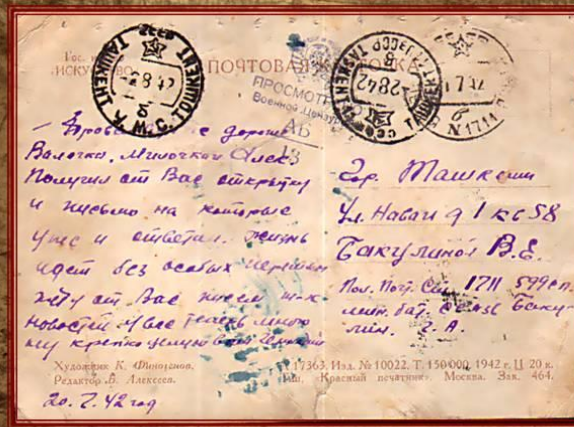 Гос.
ИСКУССТВО
ПОЧТОВАЯ КАРТОЧКА
ТАШКЕНТ
TASHKENT
ПРОСМОТРЕНО
Военной Цензурой
АБ
13
N 1711
дорогие
Валечка, Милочка и Алек.
Получил от Вас открытку
и письмо на которые
уже и ответил. Жизнь
идет без особых перемен
жду от Вас писем
новостей у вас теперь много
крепко целую
20.7.42 год
Гор. Ташкент
Ул. Наваи д 1 кв 58
Бакулиной В.Е.
Пол. Почт. Ст. 1711 599 сп.
мин. бат. связь Баку-
лин. Г. А.
Художник К. Финогенов.
Редактор В. Алексеев.
17363. Изд. № 10022. Т. 150000. 1942 г. Ц. 20 к.
Тип. "Красный печатник". Москва. Зак. 464.